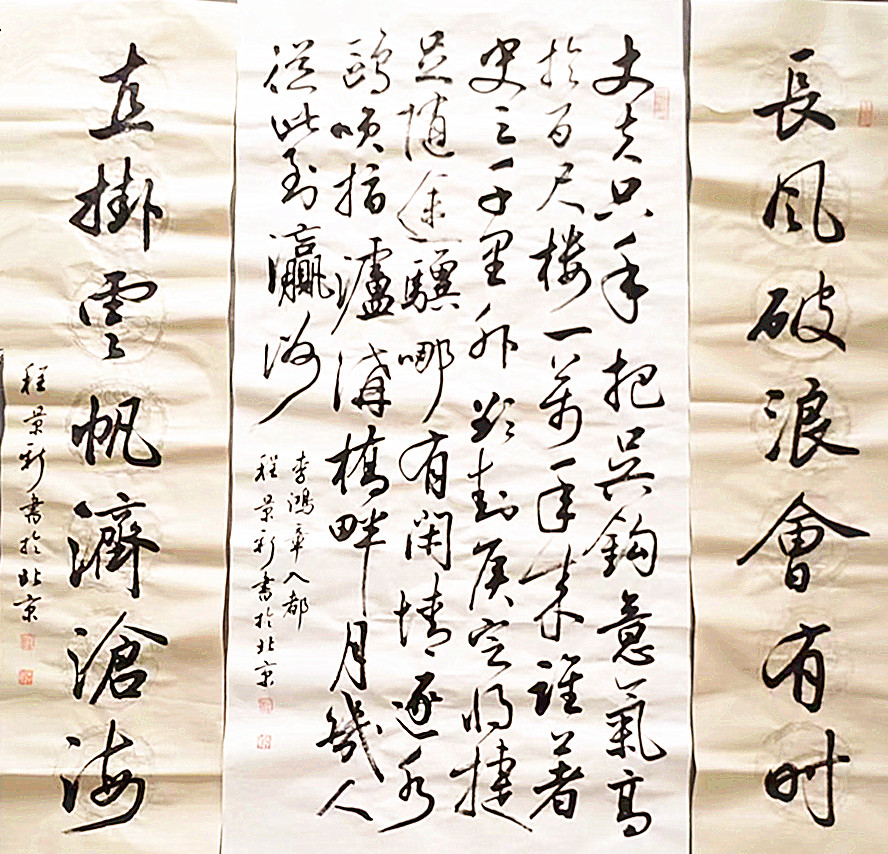 長風破浪會有时
丈夫只手把吴鉤意氣高
於百尺楼一萬年来誰著
史三千里外欲封侯定将捷
足随途驥哪有闲情逐水
鷗咲指瀘溝橋畔月幾人
從此到瀛洲
李鴻章入都
程景新書於北京
直掛雲帆濟滄海
程景新書於北京